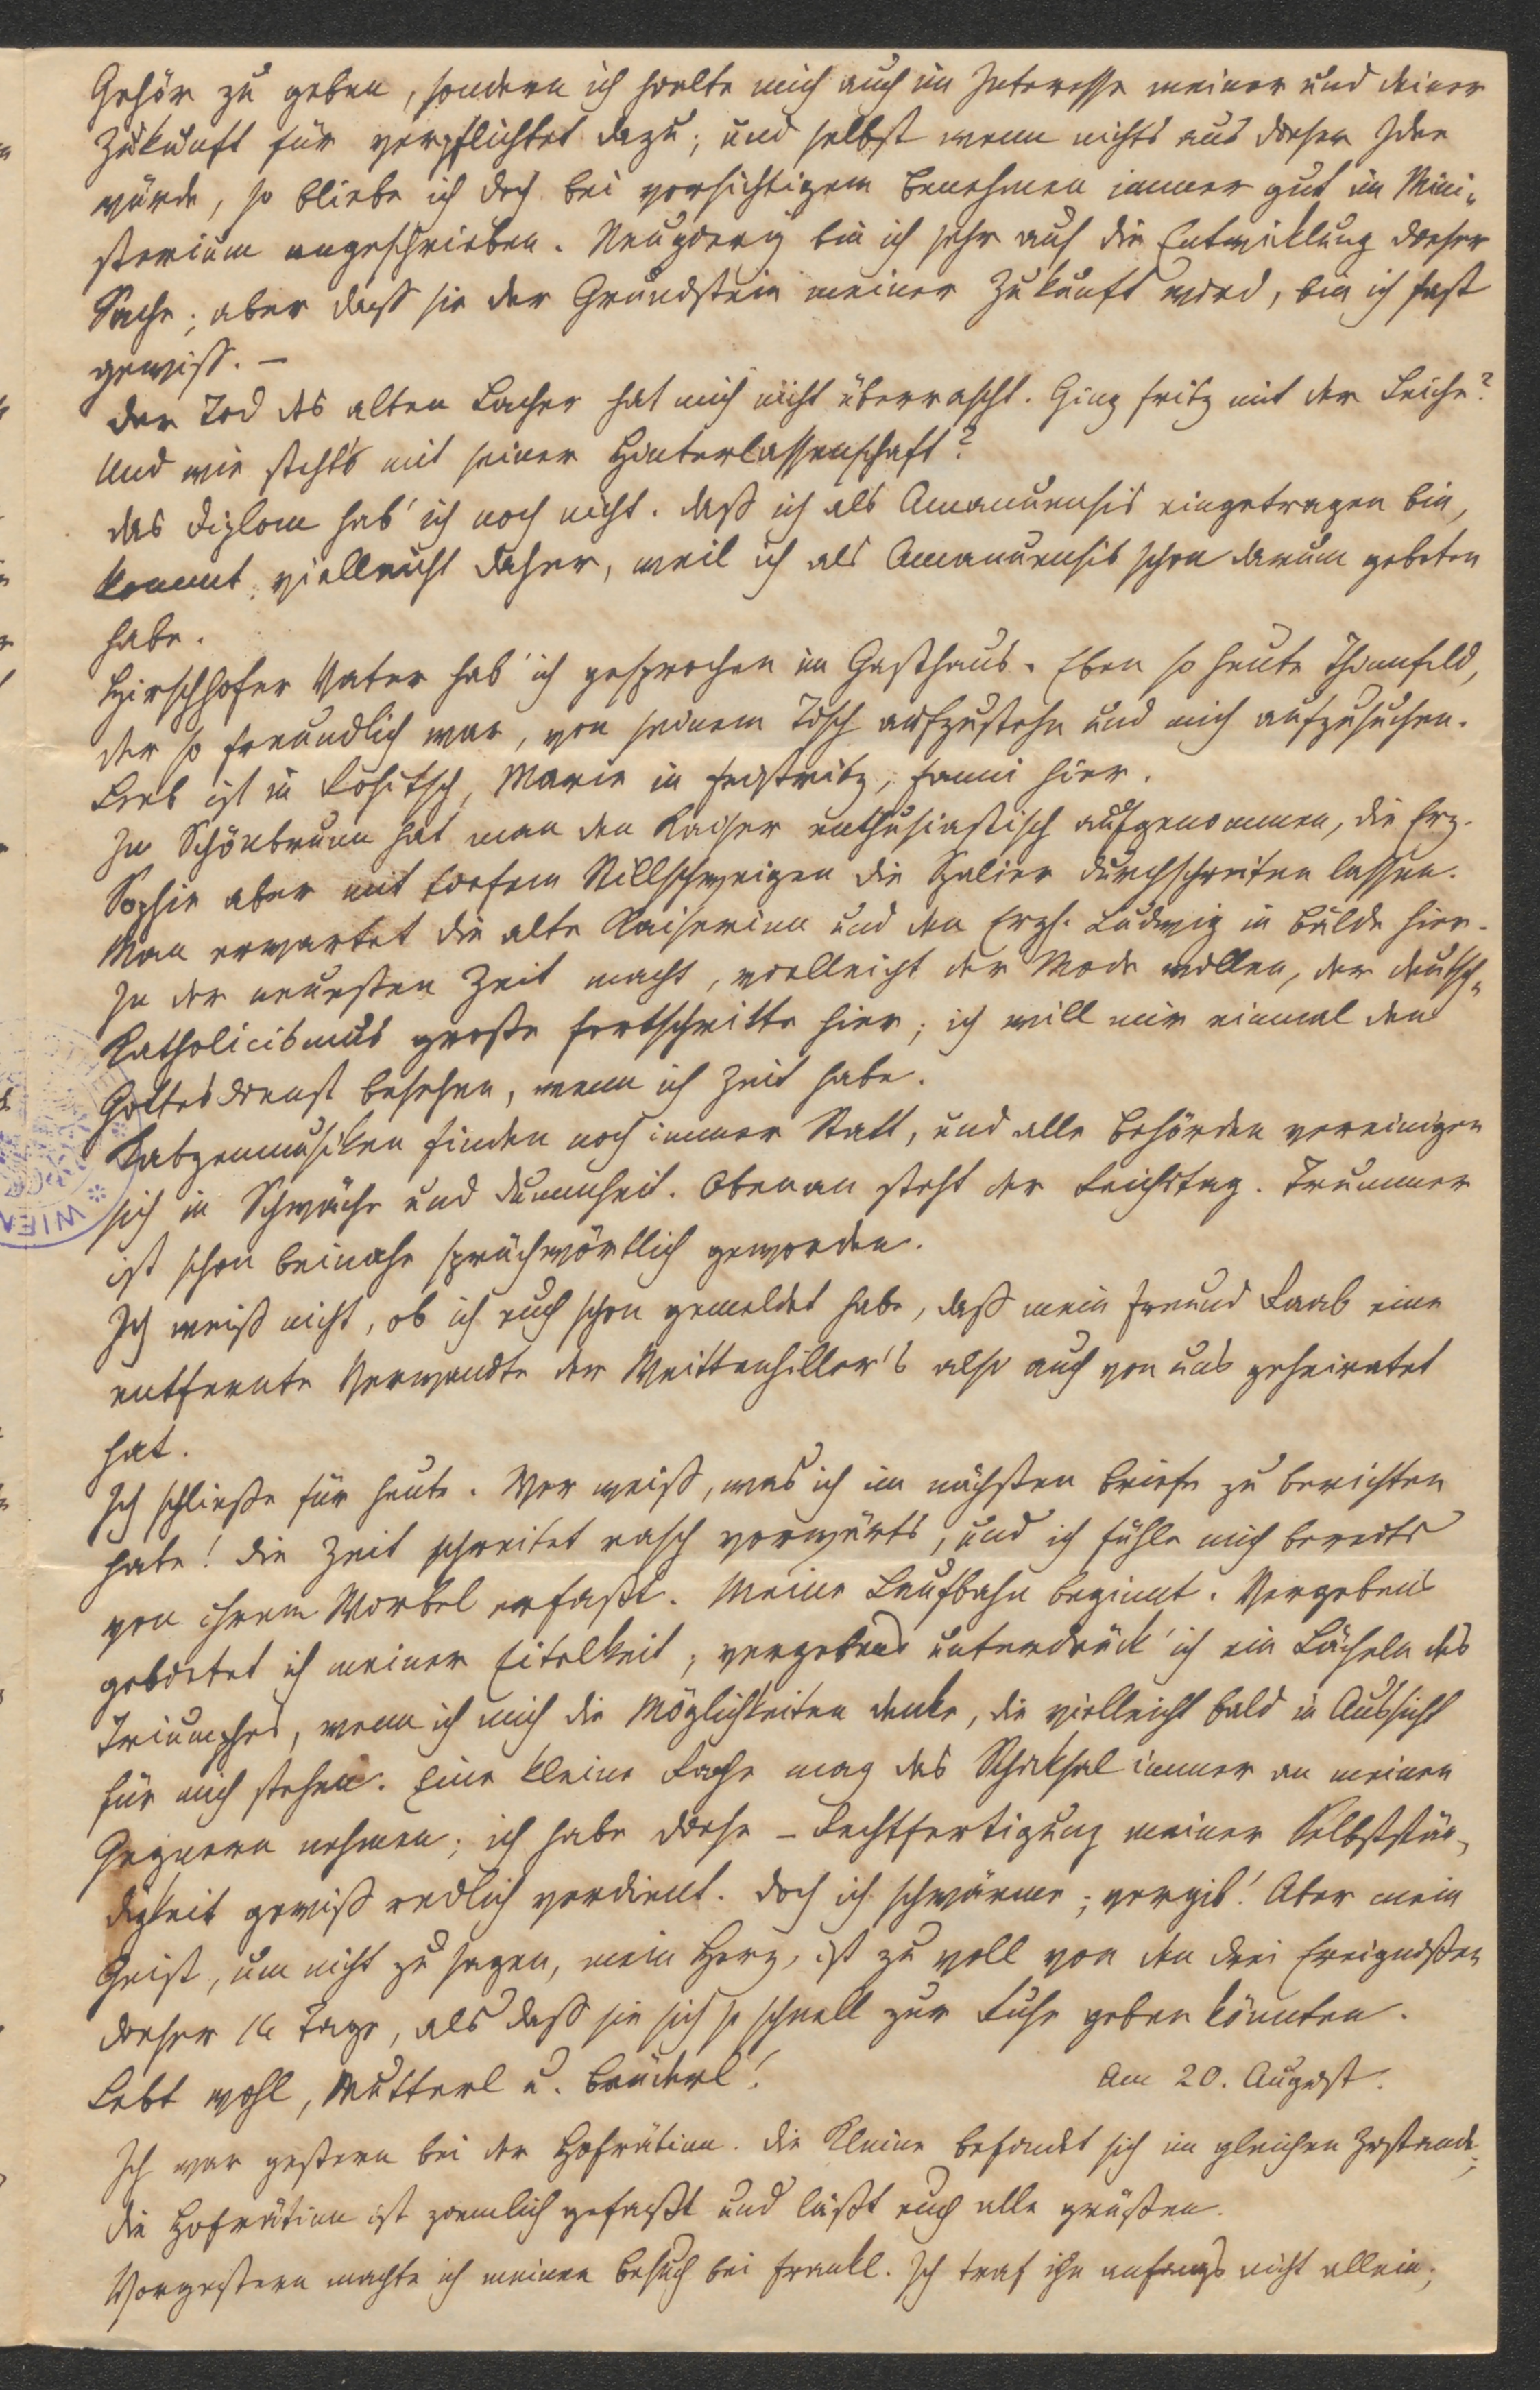 Gehör zu geben, sondern ich hielte mich auch im Interesse meiner und deiner
Zukunft für verpflichtet dazu; und selbst wenn nichts aus dieser Idee
würde, so bliebe ich doch bei vorsichtigem Benehmen immer gut im Mini-
sterium angeschrieben. Neugierig bin ich sehr auf die Entwicklung dieser
Sache; aber dass sie der Grundstein meiner Zukunft wird, bin ich fast
gewiss. –
Der Tod des alten Lacher hat mich nicht überrascht. Ging Fritz mit der Leiche?
Und wie steht's mit seiner Hinterlassenschaft?
Das Diplom hab' ich noch nicht. Daß ich als Amanuensis eingetragen bin,
kommt vielleicht daher, weil ich als Amanuensis schon darum gebeten
habe.
Hirschhofer Vater hab' ich gesprochen im Gasthaus. Eben so heute Thinnfeld,
der so freundlich war, von seinem Tisch aufzustehn und mich aufzusuchen.
ist in Rohitsch, Marie in Feistritz, Fanni hier.
In Schönbrunn hat man den Kaiser enthusiastisch aufgenommen, die Erz.
Sophie aber mit tiefem Stillschweigen die Spalier durchschreiten lassen.
Man erwartet die alte Kaiserinn und den Erzh. Ludwig in Bälde hier.
In der neuesten Zeit macht, vielleicht der Mode willen, der Deutsch-
Katholicismus große Fortschritte hier; ich will mir einmal den
Gottesdienst besehen, wenn ich Zeit habe.
Katzenmusiken finden noch immer Statt, und alle Behörden vereinigen
sich in Schwäche und Dummheit. Obenan steht der Reichstag. Trummer
ist schon beinahe sprüchwörtlich geworden.
Ich weiß nicht, ob ich euch schon gemeldet habe, daß mein Freund Raab eine
entfernte Verwandte der Weittenhiller's also auch von uns geheiratet
hat.
Ich schließe für heute. Wer weiß, was ich im nächsten Briefe zu berichten
habe! Die Zeit schreitet rasch vorwärts, und ich fühle mich bereits
von ihrem Wirbel erfaßt. Meine Laufbahn beginnt. Vergebens
gebietet ich meiner Eitelkeit; vergebens unterdrück' ich ein Lächeln des
Triumphes, wenn ich mich die Möglichkeiten denke, die vielleicht bald in Aussicht
für mich stehen. Eine kleine Rache mag das Schiksal immer an meinen
Gegnern nehmen; ich habe diese – Rechtfertigung meiner Selbststän-
digkeit gewiß redlich verdient. Doch ich schwärme; vergib! Aber mein
Geist, um nicht zu sagen, mein Herz, ist zu voll von den drei Ereignißen
dieser Tage, als daß sie sich so schnell zur Ruhe geben könnten.
Lebt wohl, Mutterl u. Brüderl! Am 20. August.
Ich war gestern bei der Hofrätinn. Die Kleine befindet sich im gleichen Zustande;
die Hofrätinn ist ziemlich gefaßt und läßt euch alle grüßen.
Vorgestern machte ich meinen Besuch bei Frankl. Ich traf ihn anfangs nicht allein;
WIEN